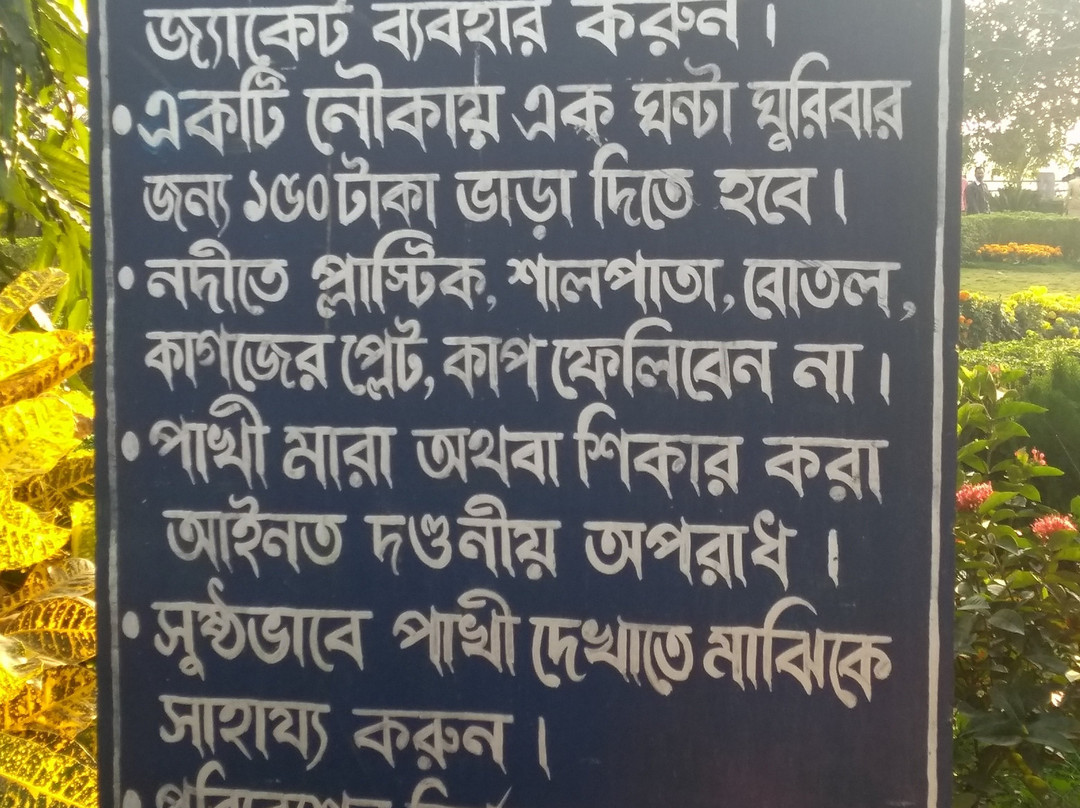 জ্যাকেট ব্যবহার করুন ।
• একটি নৌকায় এক ঘন্টা ঘুরিবার
জন্য ১৫০টাকা ভাড়া দিতে হবে ।
• নদীতে প্লাস্টিক, শালপাতা, বোতল,
কাগজের প্লেট, কাপ ফেলিবেন না ।
• পাখী মারা অথবা শিকার করা
আইনত দণ্ডনীয় অপরাধ ।
• সুষ্ঠভাবে পাখী দেখাতে মাঝিকে
সাহায্য করুন ।